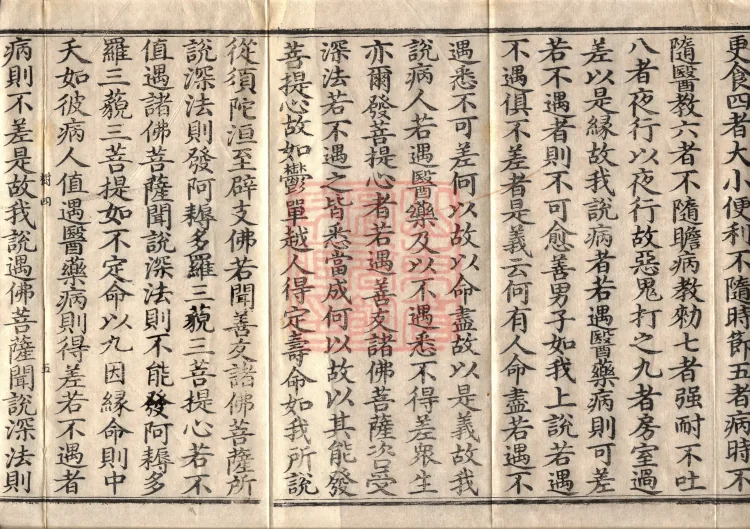 更食四者大小便利不隨時節五者病時不
隨醫教六者不隨瞻病教勑七者强耐不吐
八者夜行以夜行故惡鬼打之九者房室過
差以是緣故我說病者若遇醫藥病則可差
若不遇者則不可愈善男子如我上說若遇
不遇俱不差者是義云何有人命盡若遇不
遇悉不可差何以故以命盡故以是義故我
說病人若遇醫藥及以不遇悉不得差衆生
亦爾發菩提心者若遇善友諸佛菩薩咨受
深法若不遇之皆悉當成何以故以其能發
菩提心故如鬱單越人得定壽命如我所說
從須陀洹至辟支佛若聞善友諸佛菩薩所
說深法則發阿耨多羅三藐三菩提心若不
值遇諸佛菩薩聞說深法則不能發阿耨多
羅三藐三菩提如不定命以九因緣命則中
夭如彼病人值遇醫藥病則得差若不遇者
四 五
病則不差是故我說遇佛菩薩聞說深法則